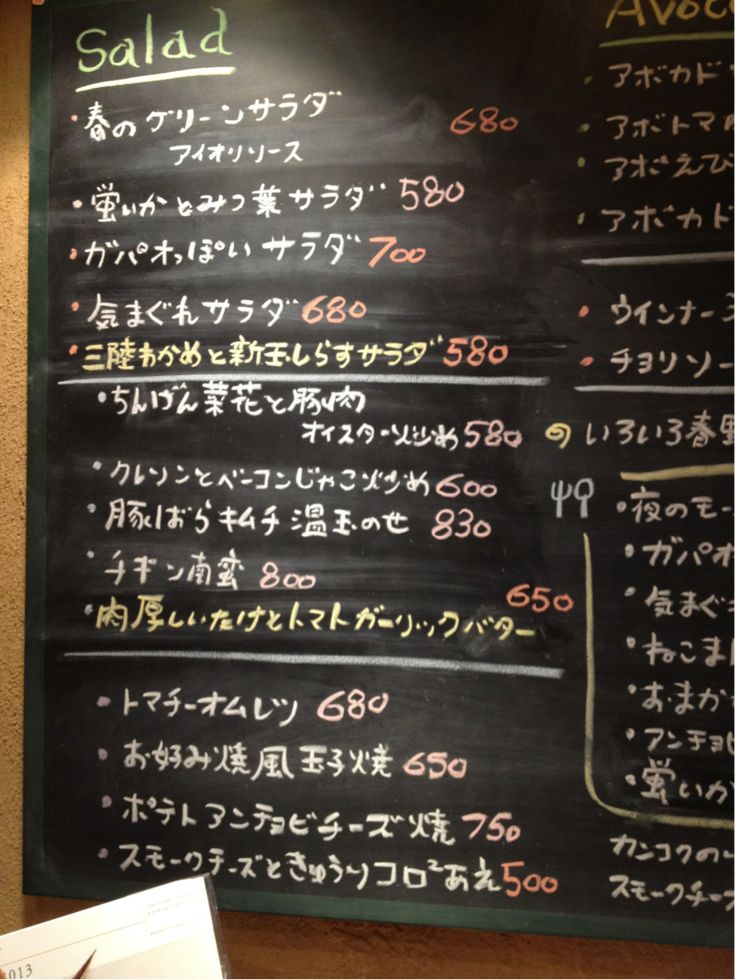 Salad
・春のグリーンサラダ 680
アイオリソース
・蛍いかとみつ葉サラダ 580
・ガパオっぽいサラダ 700
・気まぐれサラダ 680
・三陸わかめと新玉しらすサラダ 580
・ちんげん菜花と豚肉
オイスター炒め 580
・クレソンとベーコンじゃこ炒め 600
・豚ばらキムチ温玉のせ 830
・チキン南蛮 800
・肉厚しいたけとトマトガーリックバター 650
・トマチーオムレツ 680
・お好み焼風玉子焼 650
・ポテトアンチョビチーズ焼 750
・スモークチーズときゅうりコロ²あえ 500
Avoc
・アボカド
・アボトマ
・アボえび
・アボカド
・ウインナー
・チョリソー
いろいろ春野
・夜のモー
・ガパオ
・気まぐ
・ねこま
・おまか
・アンチョビ
・蛍いか
カンコクの
スモークチー
2013